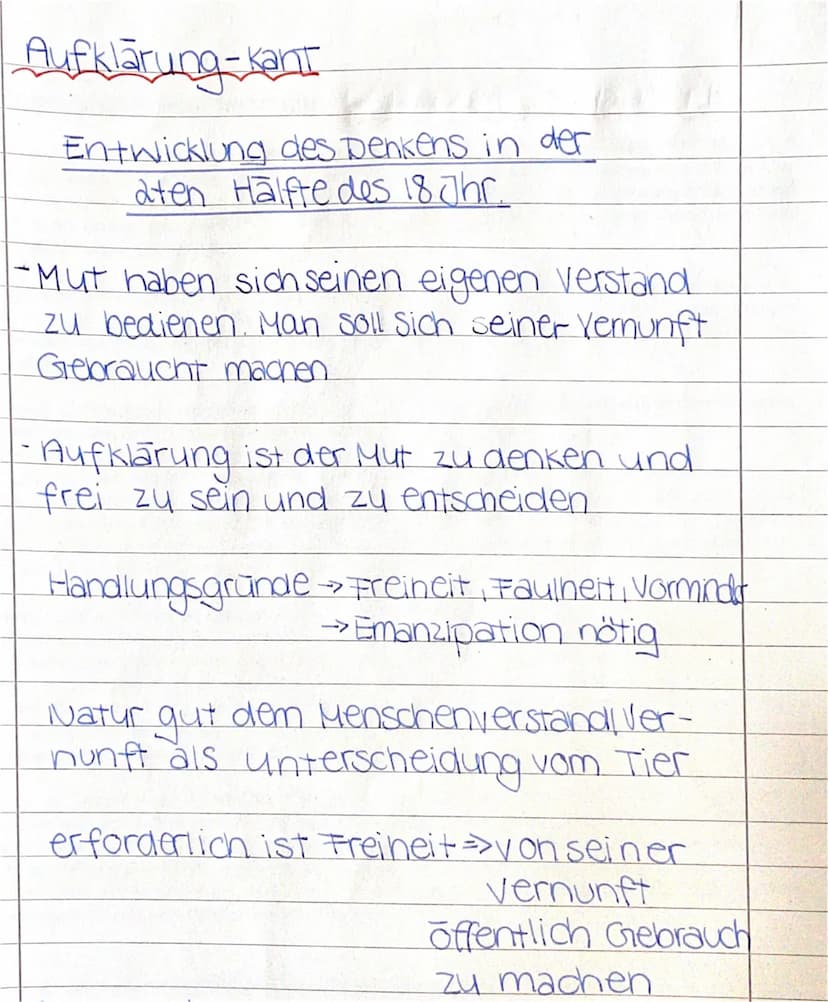 Aufklärung-Kant
Entwicklung des Denkens in der
2ten Hälfte des 18 Jhr.
- Mut haben sich seinen eigenen Verstand
zu bedienen. Man soll sich seiner Vernunft
Gebraucht machen
- Aufklärung ist der Mut zu denken und
frei zu sein und zu entscheiden
Handlungsgründe → Freiheit, Faulheit, Vormindr
→ Emanzipation nötig
Natur gut dem Menschenverstand/Ver-
nunft als Unterscheidung vom Tier
erforderlich ist Freiheit ⇒ von seiner
Vernunft
öffentlich Gebrauch
zu machen